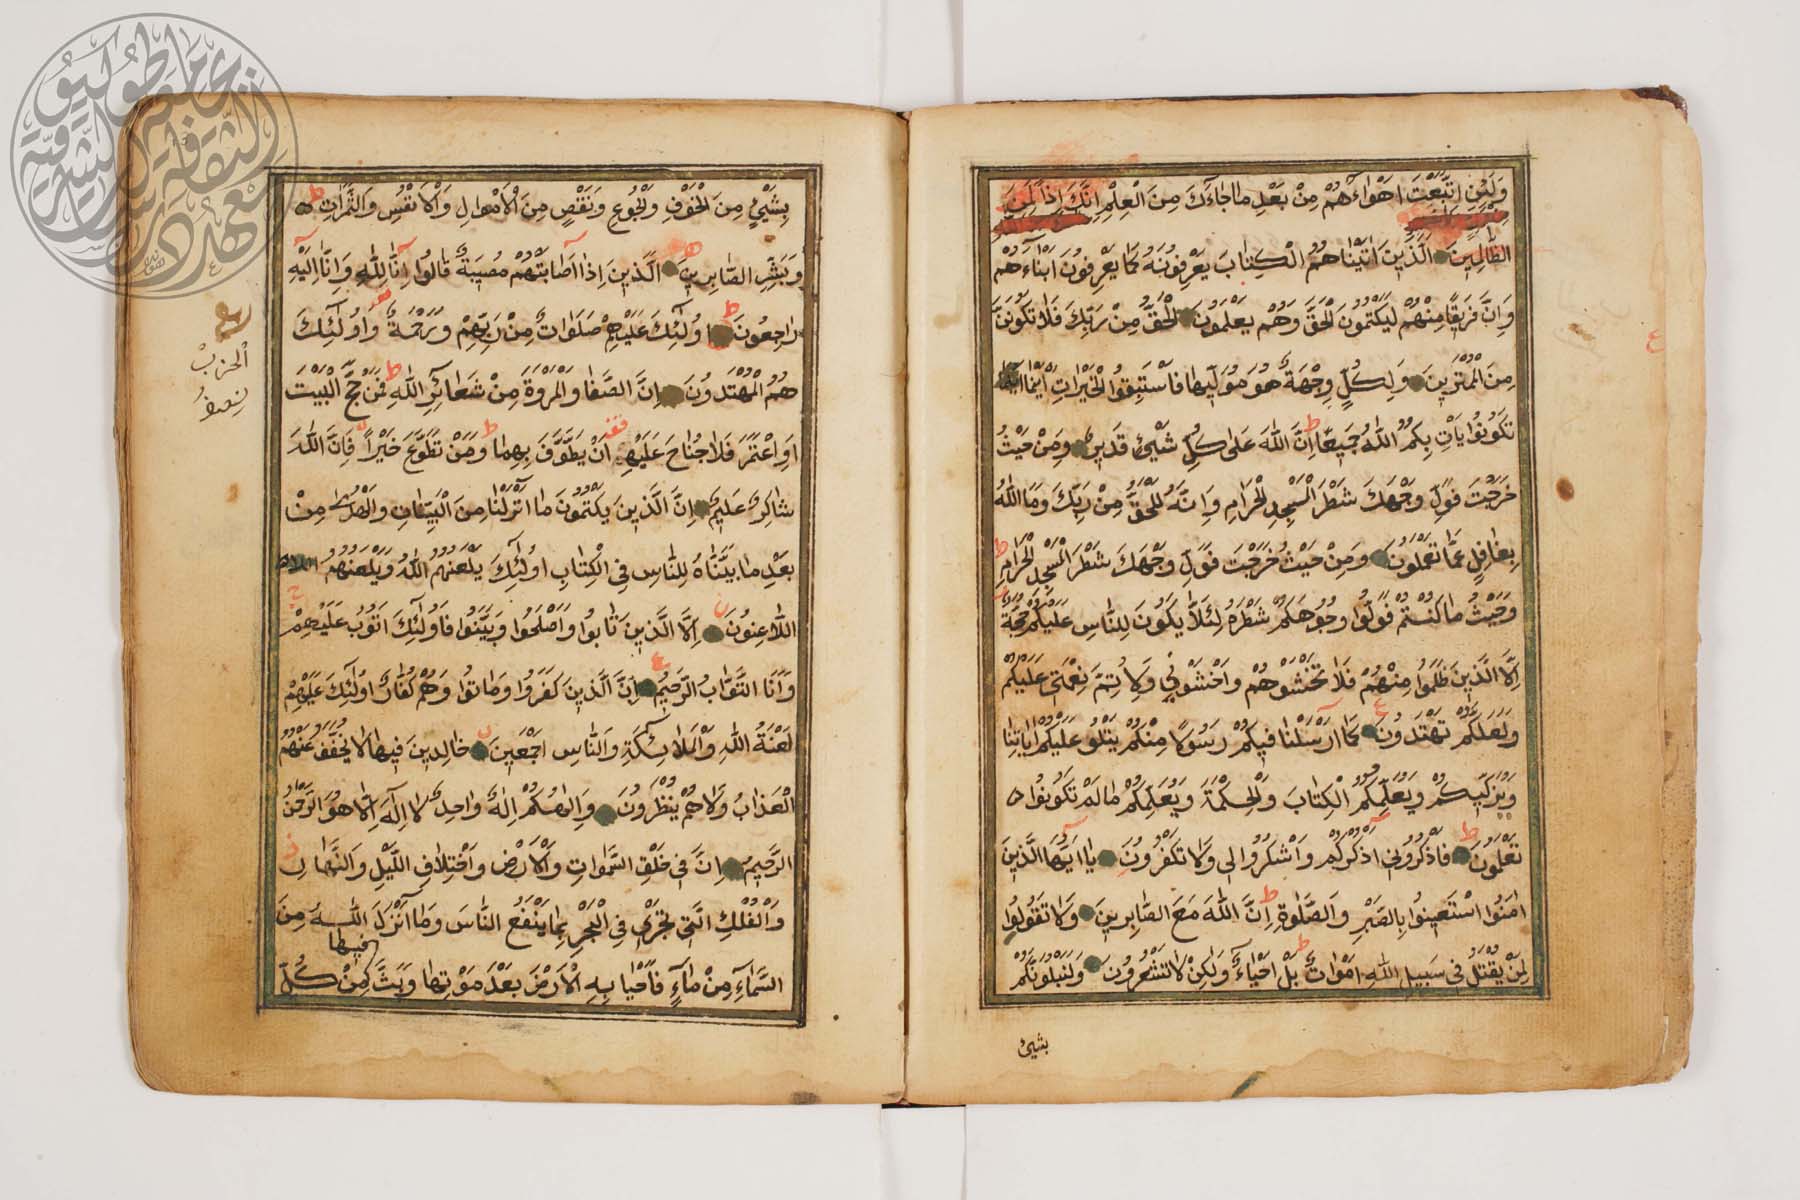 وَلَئِنِ اتَّبَعْتَ اَهْوَاءَهُمْ مِنْ بَعْدِ مَا جَاءَكَ مِنَ الْعِلْمِ اِنَّكَ اِذًا لَمِنَ
الظَّالِمِينَ اَلَّذِينَ اٰتَيْنَاهُمُ الْكِتَابَ يَعْرِفُونَهُ كَمَا يَعْرِفُونَ اَبْنَاءَهُمْ
وَاِنَّ فَرِيقًا مِنْهُمْ لَيَكْتُمُونَ الْحَقَّ وَهُمْ يَعْلَمُونَ اَلْحَقُّ مِنْ رَبِّكَ فَلَا تَكُونَنَّ
مِنَ الْمُمْتَرِينَ وَلِكُلٍّ وِجْهَةٌ هُوَ مُوَلِّيهَا فَاسْتَبِقُوا الْخَيْرَاتِ اَيْنَمَا
تَكُونُوا يَاْتِ بِكُمُ اللّٰهُ جَمِيعًا اِنَّ اللّٰهَ عَلٰى كُلِّ شَيْئٍ قَدِيرٌ وَمِنْ حَيْثُ
خَرَجْتَ فَوَلِّ وَجْهَكَ شَطْرَ الْمَسْجِدِ الْحَرَامِ وَاِنَّهُ لَلْحَقُّ مِنْ رَبِّكَ وَمَا اللّٰهُ
بِغَافِلٍ عَمَّا تَعْمَلُونَ وَمِنْ حَيْثُ خَرَجْتَ فَوَلِّ وَجْهَكَ شَطْرَ الْمَسْجِدِ الْحَرَامِ ط
وَحَيْثُ مَا كُنْتُمْ فَوَلُّوا وُجُوهَكُمْ شَطْرَهُ لِئَلَّا يَكُونَ لِلنَّاسِ عَلَيْكُمْ حُجَّةٌ
اِلَّا الَّذِينَ ظَلَمُوا مِنْهُمْ فَلَا تَخْشَوْهُمْ وَاخْشَوْنِي وَلِاُتِمَّ نِعْمَتِي عَلَيْكُمْ
وَلَعَلَّكُمْ تَهْتَدُونَ كَمَا اَرْسَلْنَا فِيكُمْ رَسُولًا مِنْكُمْ يَتْلُو عَلَيْكُمْ اٰيَاتِنَا
وَيُزَكِّيكُمْ وَيُعَلِّمُكُمُ الْكِتَابَ وَالْحِكْمَةَ وَيُعَلِّمُكُمْ مَا لَمْ تَكُونُوا
تَعْلَمُونَ ط فَاذْكُرُونِي اَذْكُرْكُمْ وَاشْكُرُوا لِي وَلَا تَكْفُرُونِ يَا اَيُّهَا الَّذِينَ
اٰمَنُوا اسْتَعِينُوا بِالصَّبْرِ وَالصَّلٰوةِ ط اِنَّ اللّٰهَ مَعَ الصَّابِرِينَ وَلَا تَقُولُوا
لِمَنْ يُقْتَلُ فِي سَبِيلِ اللّٰهِ اَمْوَاتٌ ط بَلْ اَحْيَاءٌ وَلٰكِنْ لَا تَشْعُرُونَ وَلَنَبْلُوَنَّكُمْ
بشيئ
بِشَيْئٍ مِنَ الْخَوْفِ وَالْجُوعِ وَنَقْصٍ مِنَ الْاَمْوَالِ وَالْاَنْفُسِ وَالثَّمَرَاتِ ط
وَبَشِّرِ الصَّابِرِينَ اَلَّذِينَ اِذَا اَصَابَتْهُمْ مُصِيبَةٌ قَالُوا اِنَّا لِلّٰهِ وَاِنَّا اِلَيْهِ
رَاجِعُونَ ط اُولٰئِكَ عَلَيْهِمْ صَلَوَاتٌ مِنْ رَبِّهِمْ وَرَحْمَةٌ وَاُولٰئِكَ
هُمُ الْمُهْتَدُونَ اِنَّ الصَّفَا وَالْمَرْوَةَ مِنْ شَعَائِرِ اللّٰهِ ط فَمَنْ حَجَّ الْبَيْتَ
اَوِ اعْتَمَرَ فَلَا جُنَاحَ عَلَيْهِ اَنْ يَطَّوَّفَ بِهِمَا ط وَمَنْ تَطَوَّعَ خَيْرًا فَاِنَّ اللّٰهَ
شَاكِرٌ عَلِيمٌ اِنَّ الَّذِينَ يَكْتُمُونَ مَا اَنْزَلْنَا مِنَ الْبَيِّنَاتِ وَالْهُدٰى مِنْ
بَعْدِ مَا بَيَّنَّاهُ لِلنَّاسِ فِي الْكِتَابِ اُولٰئِكَ يَلْعَنُهُمُ اللّٰهُ وَيَلْعَنُهُمُ
اللَّاعِنُونَ اِلَّا الَّذِينَ تَابُوا وَاَصْلَحُوا وَبَيَّنُوا فَاُولٰئِكَ اَتُوبُ عَلَيْهِمْ
وَاَنَا التَّوَّابُ الرَّحِيمُ اِنَّ الَّذِينَ كَفَرُوا وَمَاتُوا وَهُمْ كُفَّارٌ اُولٰئِكَ عَلَيْهِمْ
لَعْنَةُ اللّٰهِ وَالْمَلَائِكَةِ وَالنَّاسِ اَجْمَعِينَ خَالِدِينَ فِيهَا لَا يُخَفَّفُ عَنْهُمُ
الْعَذَابُ وَلَا هُمْ يُنْظَرُونَ وَاِلٰهُكُمْ اِلٰهٌ وَاحِدٌ لَا اِلٰهَ اِلَّا هُوَ الرَّحْمٰنُ
الرَّحِيمُ اِنَّ فِي خَلْقِ السَّمٰوَاتِ وَالْاَرْضِ وَاخْتِلَافِ اللَّيْلِ وَالنَّهَارِ
وَالْفُلْكِ الَّتِي تَجْرِي فِي الْبَحْرِ بِمَا يَنْفَعُ النَّاسَ وَمَا اَنْزَلَ اللّٰهُ مِنَ
السَّمَاءِ مِنْ مَاءٍ فَاَحْيَا بِهِ الْاَرْضَ بَعْدَ مَوْتِهَا وَبَثَّ فِيهَا مِنْ كُلِّ
الحزب
نصف